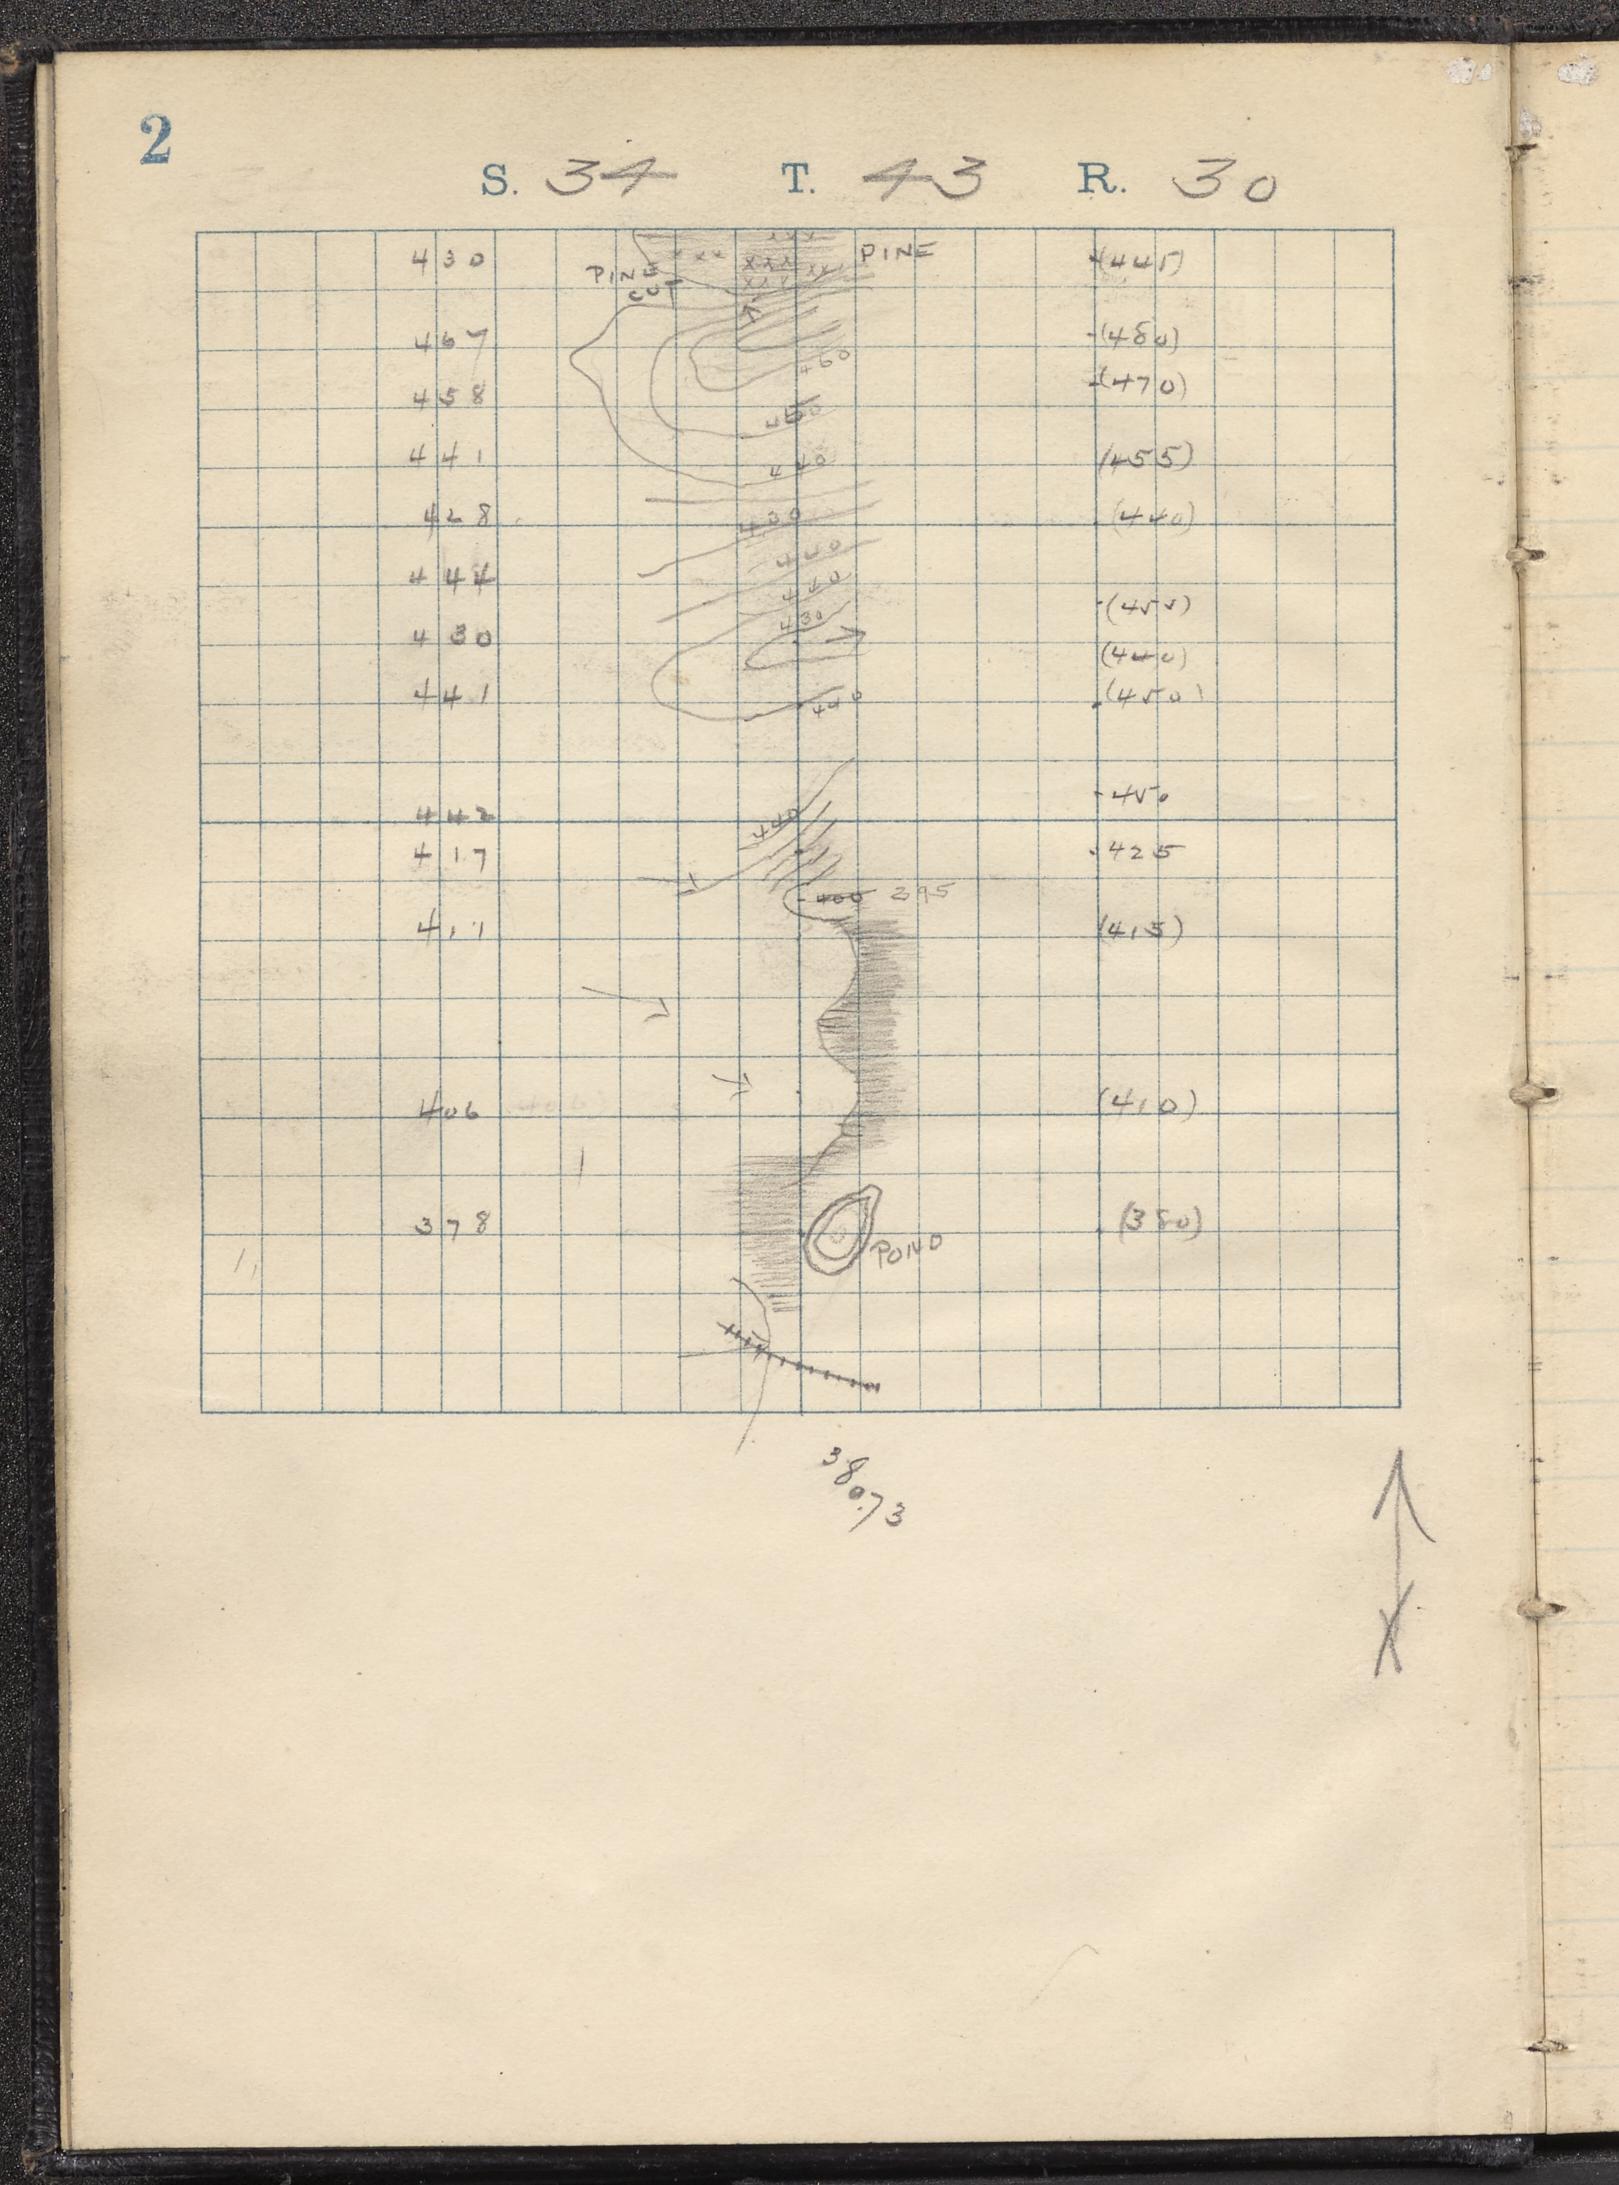 2
S. 34 T. 43 R. 30
430 PINE (445)
PINE
CUT
467 (480)
460
458 (470)
450
441 440 (455)
428 430 (440)
440
444 440
(455)
430 430 (440)
441 440 (450)
442 440 450
417 425
400 395
411 (415)
406 (410)
378 (380)
POND
380.73